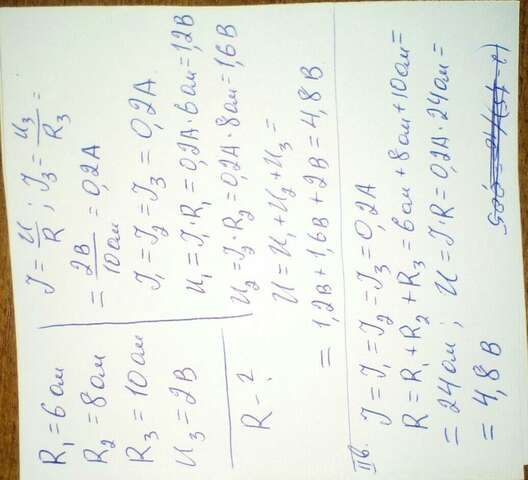 R₁=6 ом
R₂=8 ом
R₃=10 ом
U₃=2В
R-?
J=U/R; J₃=U₃/R₃=
=2В/10ом=0,2А
J₁=J₂=J₃=0,2А.
U₁=J₁R₁=0,2А·6ом=1,2В
U₂=J₂·R₂=0,2А·8ом=1,6В
U=U₁+U₂+U₃=
=1,2В+1,6В+2В=4,8В
IIв. J=J₁=J₂=J₃=0,2А
R=R₁+R₂+R₃=6ом+8ом+10ом=
=24ом; U=J·R=0,2А·24ом=
=4,8В